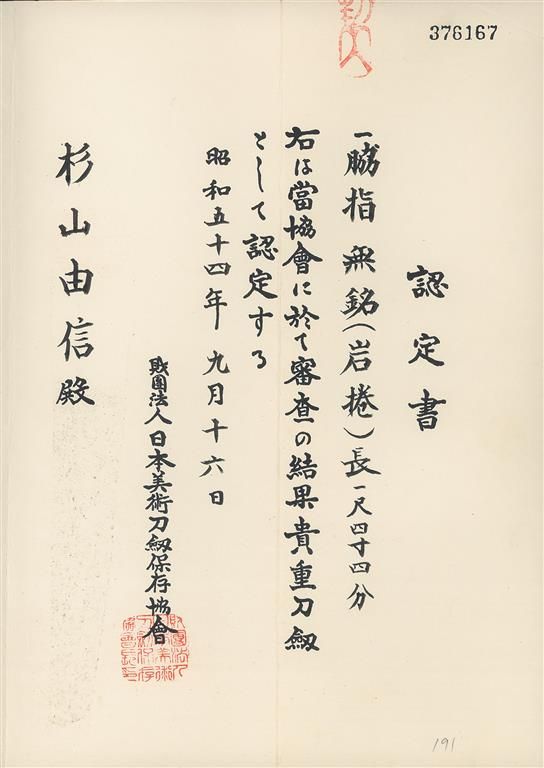 376167
認定書
一脇指 無銘(岩捲)長一尺四寸四分
右は當協會に於て審査の結果貴重刀劔
として認定する
昭和五十四年 九月十六日
財團法人日本美術刀劔保存協會
杉山由信殿
191